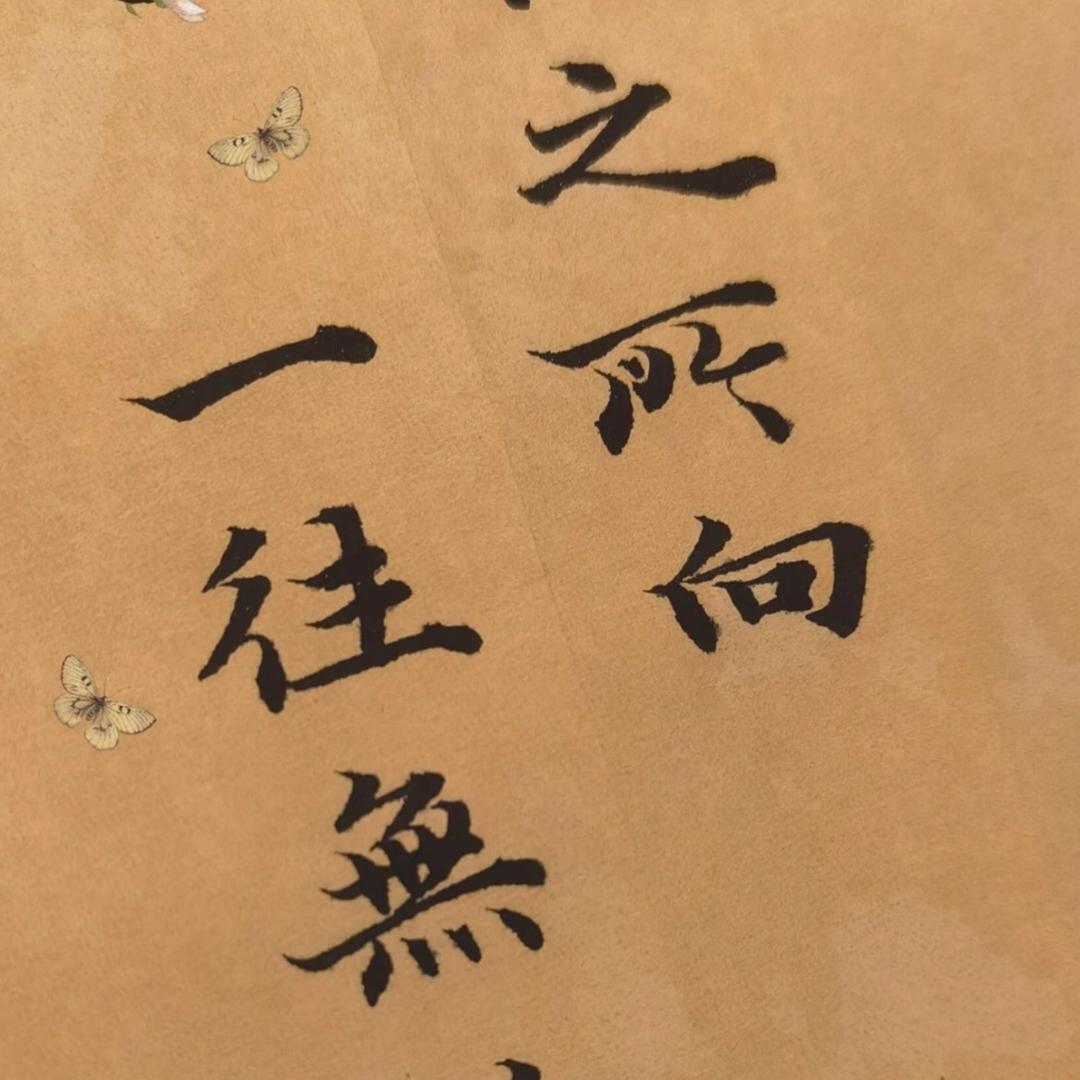 之所向
一往無